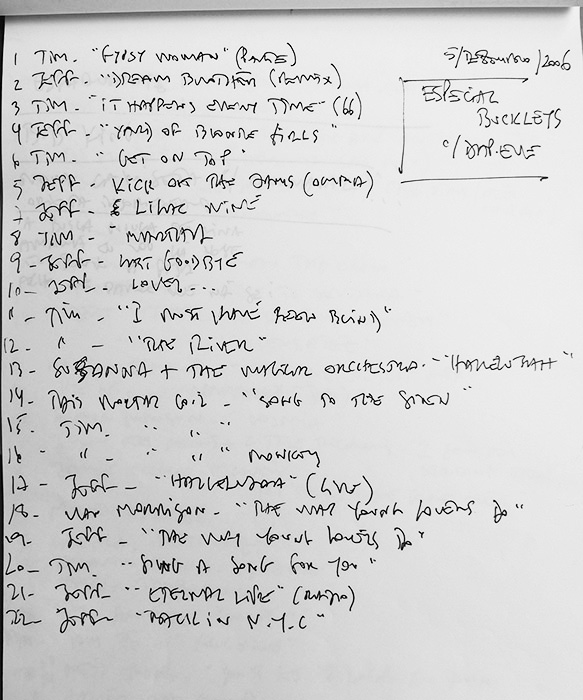 5/DEZEMBRO/2006
ESPECIAL
BUCKLEYS
C/ DAP.EVE
1 TIM. "GYPSY WOMAN" (PARTE)
2 JEFF - "DREAM BROTHER (REMIX)
3 TIM - "IT HAPPENS EVERY TIME" (66)
4 JEFF - "YARD OF BLONDE GIRLS"
6 TIM - "GET ON TOP"
5 JEFF - KICK OUT THE JAMS (CHICAGO)
7 JEFF - LILAC WINE
8 TIM - MARTHA
9 - JEFF - LAST GOODBYE
10 - JEFF - LOVER....
11 - TIM - "I MUST HAVE BEEN BLIND"
12 - " - "THE RIVER"
13 - SUSANNA + THE MAGICAL ORCHESTRA - "HALLELUJAH"
14 - THIS MORTAL COIL - "SONG TO THE SIREN"
15 - TIM. " " "
16 - " - " " " MONKEES
17 - JEFF - "HALLELUJAH" (LIVE)
18 - VAN MORRISON - "THE WAY YOUNG LOVERS DO"
19 - JEFF - "THE WAY YOUNG LOVERS DO"
20 - TIM. "SING A SONG FOR YOU"
21 - JEFF - "ETERNAL LIFE" (RADIO)
22 - JEFF - "BACK IN N.Y.C"